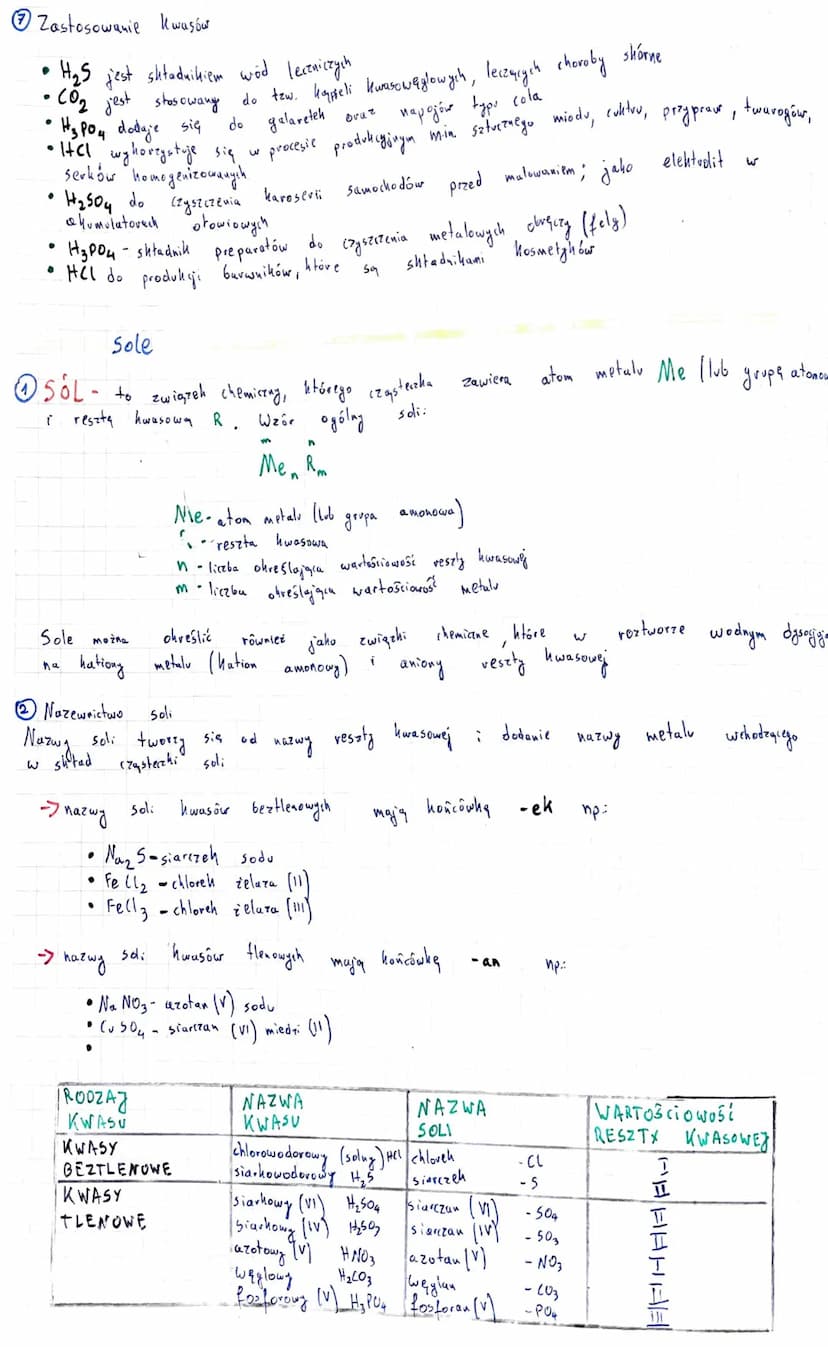 ⑦ Zastosowanie kwasów
• H₂S jest składnikiem wód leczniczych
• CO₂ jest stosowany do tzw. kąpieli kwasowęglowych, leczących choroby skórne
• H₃PO₄ dodaje się do galaretek oraz napojów typu cola
• HCl wykorzystuje się w procesie produkcyjnym min. sztucznego miodu, cukru, przypraw, twarogów,
serków homogenizowanych
• H₂SO₄ do czyszczenia karoserii samochodów przed malowaniem; jako elektrolit w
akumulatorach ołowiowych
• H₃PO₄ - składnik preparatów do czyszczenia metalowych obręczy (felg)
• HCl do produkcji barwników, które są składnikami kosmetyków
Sole
① SÓL - to związek chemiczny, którego cząsteczka zawiera atom metalu Me (lub grupę
i resztę kwasową R. Wzór ogólny soli:
m n
Meₙ Rₘ
Me - atom metalu (lub grupa amonowa)
- reszta kwasowa
n - liczba określająca wartościowość reszty kwasowej
m - liczba określająca wartościowość metalu
Sole można określić również jako związki chemiczne, które w roztworze wodnym
na kationy metalu (kation amonowy) i aniony reszty kwasowej
② Nazewnictwo soli
Nazwy soli tworzy się od nazwy reszty kwasowej i dodanie nazwy metalu wchodzącego
w skład cząsteczki soli
→ nazwy soli kwasów beztlenowych mają końcówkę -ek np:
• Na₂S - siarczek sodu
• FeCl₂ - chlorek żelaza (II)
• FeCl₃ - chlorek żelaza (III)
→ nazwy soli kwasów tlenowych mają końcówkę -an np.:
• NaNO₃ - azotan (V) sodu
• CuSO₄ - siarczan (VI) miedzi (II)
•
RODZAJ KWASU NAZWA KWASU NAZWA SOLI WARTOŚCIOWOŚĆ RESZTY KWASOWEJ
KWASY BEZTLENOWE chlorowodorowy (solny) HCl chlorek -Cl I
siarkowodorowy H₂S siarczek -S II
KWASY TLENOWE siarkowy (VI) H₂SO₄ siarczan (VI) -SO₄ II
siarkowy (IV) H₂SO₃ siarczan (IV) -SO₃ II
azotowy (V) HNO₃ azotan (V) -NO₃ I
węglowy H₂CO₃ węglan -CO₃ II
fosforowy (V) H₃PO₄ fosforan (V) -PO₄ III